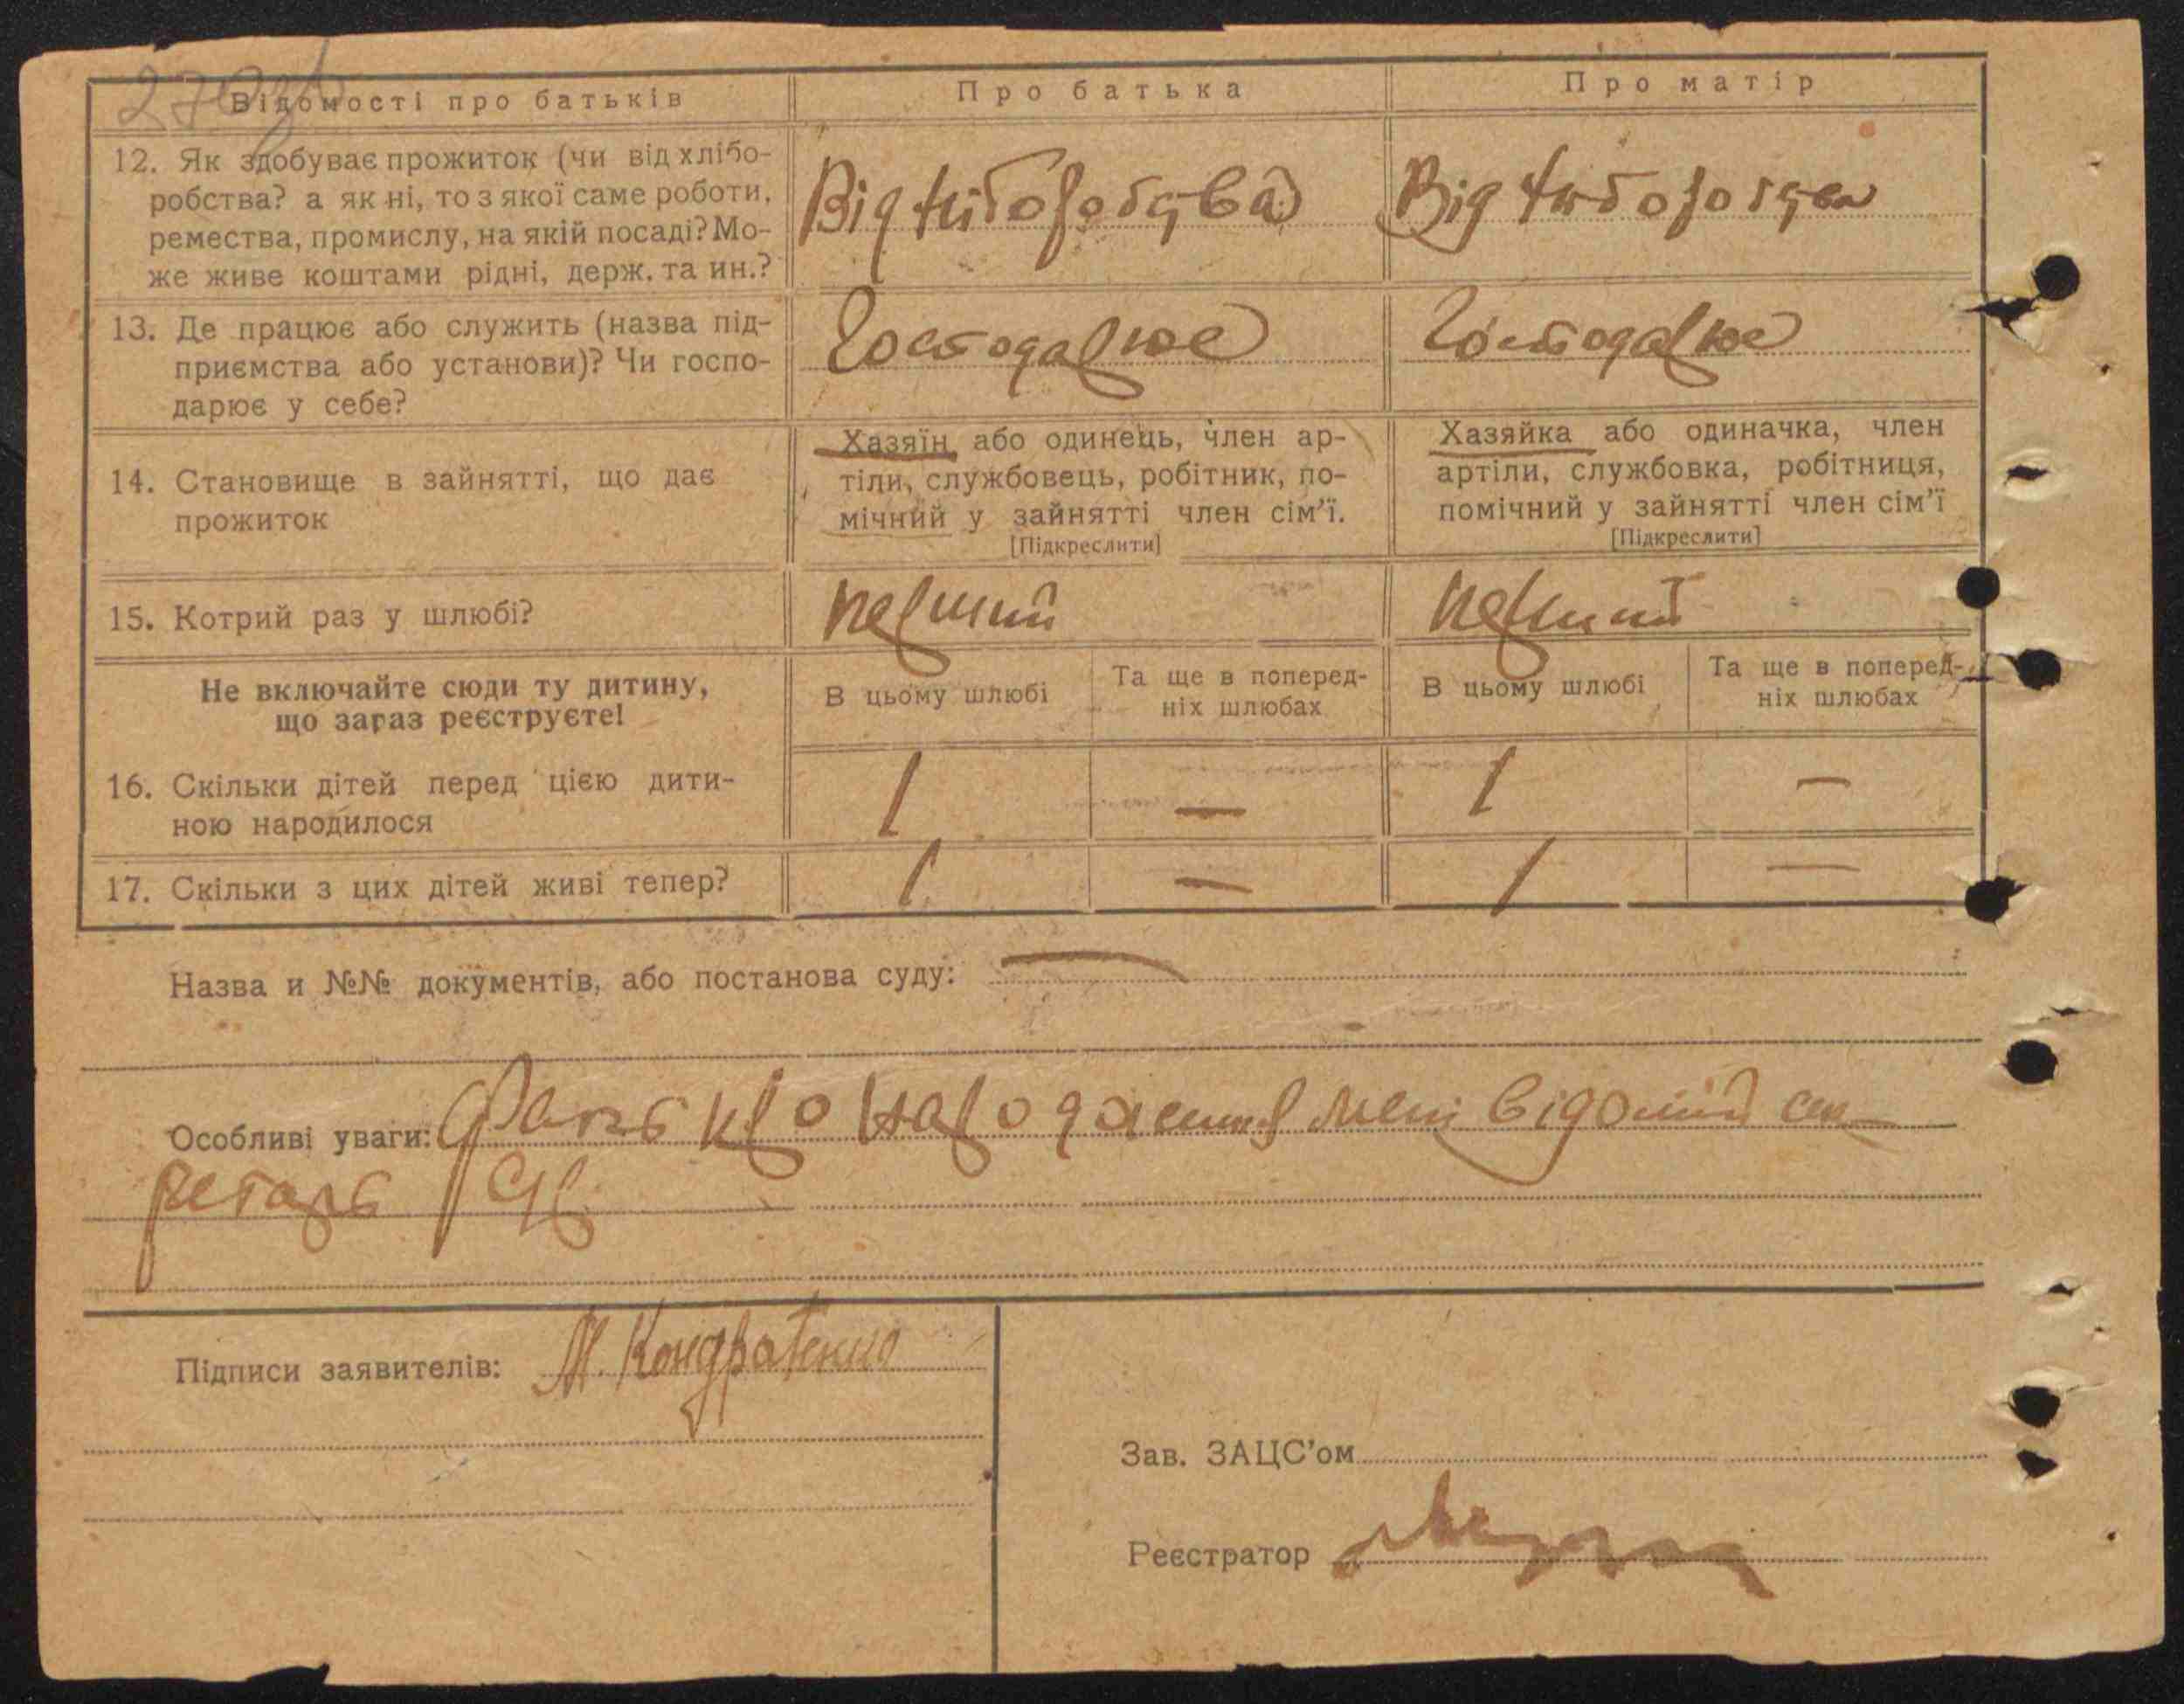 Відомості про батьків
Про батька
Про матір
12. Як здобуває прожиток (чи від хлібо-
робства? а як ні, то з якої саме роботи,
ремества, промислу, на якій посаді? Мо-
же живе коштами рідні, держ. та ин.?
Від хліборобства
Від хліборобства
13. Де працює або служить (назва під-
приємства або установи)? Чи госпо-
дарює у себе?
Господарює
Господарює
14. Становище в зайнятті, що дає
прожиток
Хазяїн, або одинець, член ар-
тіли, службовець, робітник, по-
мічний у зайнятті член сім’ї.
[Підкреслити]
Хазяйка або одиначка, член
артіли, службовка, робітниця,
помічний у зайнятті член сім’ї
[Підкреслити]
15. Котрий раз у шлюбі?
первий
первий
Не включайте сюди ту дитину,
що зараз реєструєте!
В цьому шлюбі
Та ще в поперед-
ніх шлюбах
В цьому шлюбі
Та ще в поперед-
ніх шлюбах
16. Скільки дітей перед цією дити-
ною народилося
1
—
1
—
17. Скільки з цих дітей живі тепер?
1
—
1
—
Назва и №№ документів, або постанова суду: —
Особливі уваги: Факт про народження мені відомий сек
ретарь
Підписи заявителів: М. Кондратенко
Зав. ЗАЦС’ом
Реєстратор